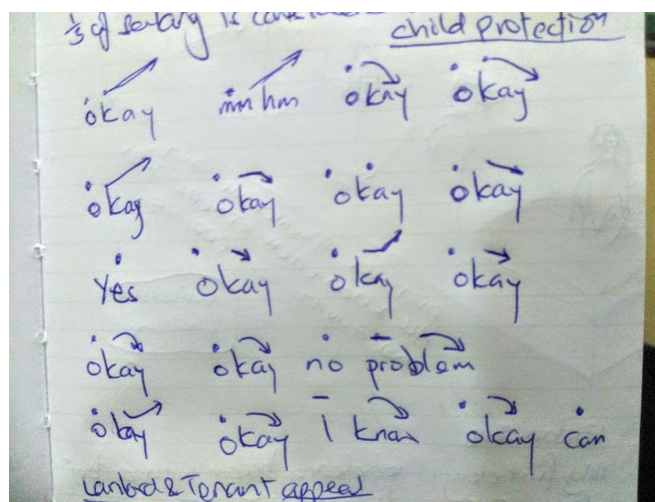 1/3 of is
child protection
okay mm hm okay okay
okay okay okay okay
Yes okay okay okay
okay okay no problem
okay okay I know okay can
Lanlord & Tenant appeal